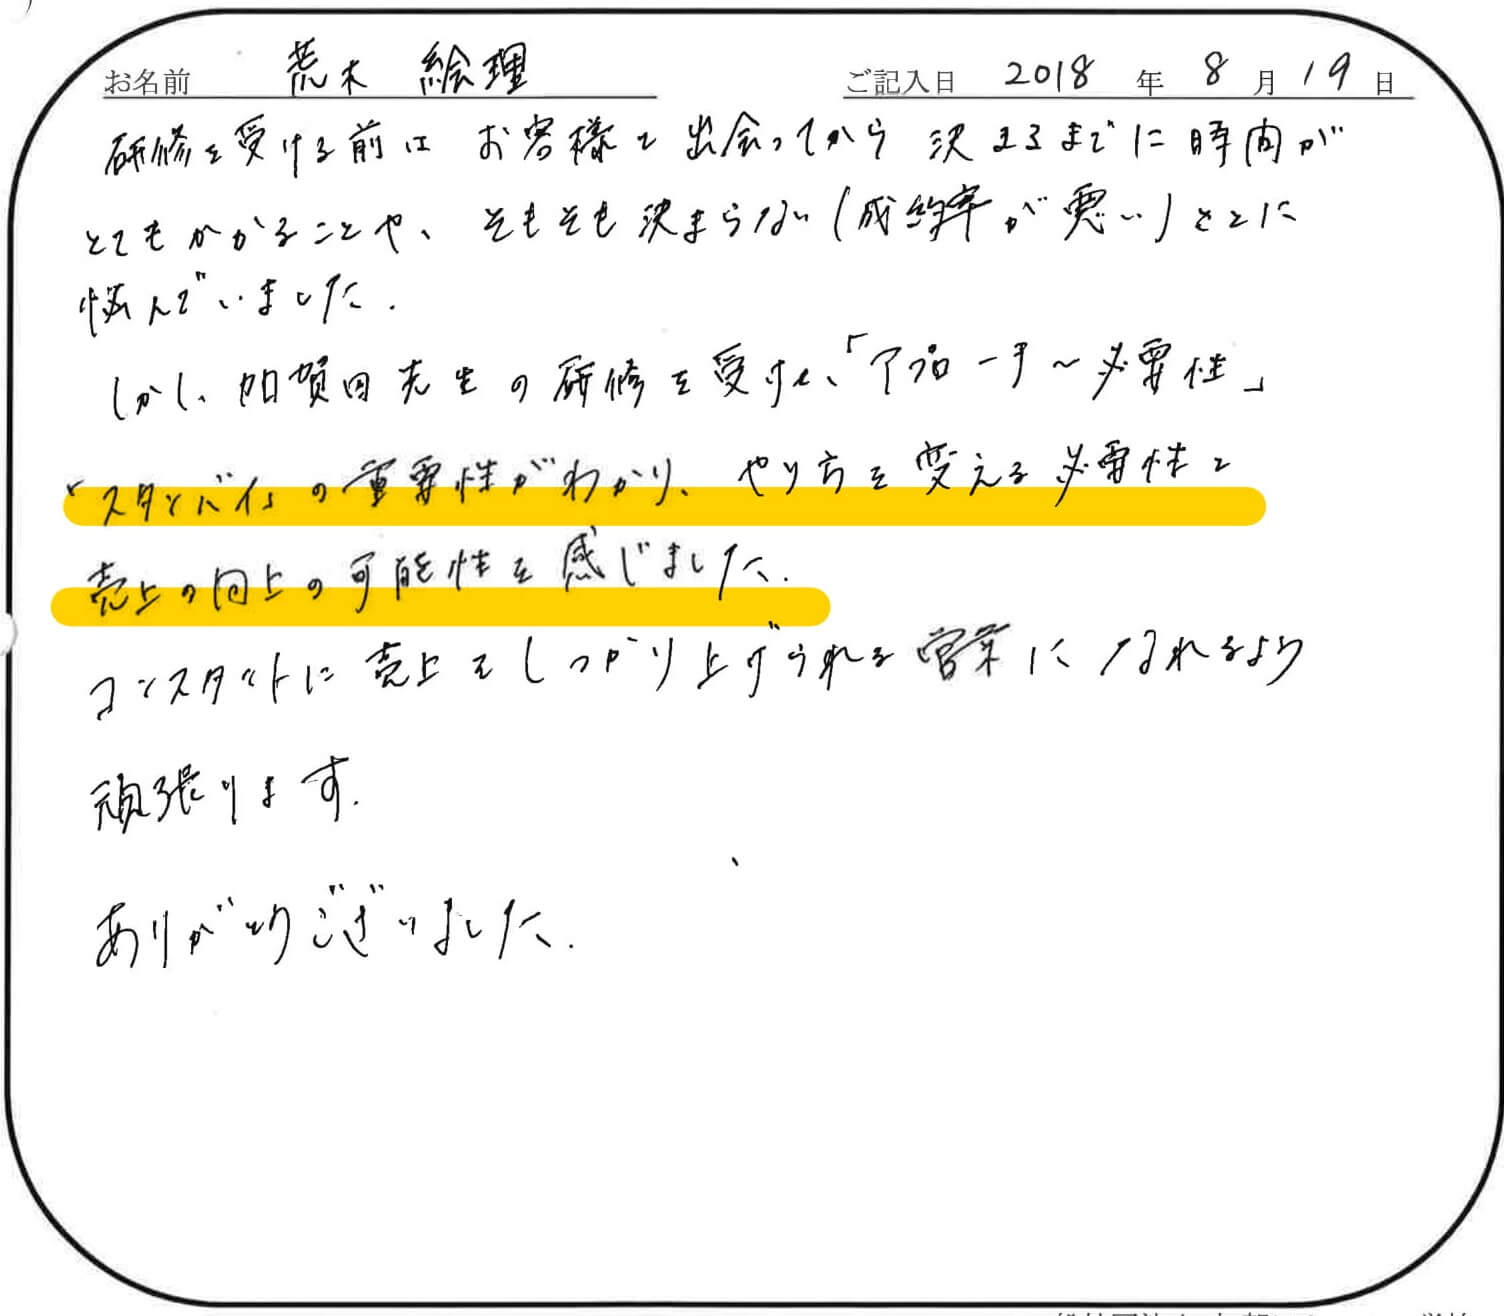 お名前 荒木 絵理 ご記入日 2018 年 8 月 19 日
研修を受ける前は お客様と出会ってから決まるまでに時間が
とてもかかることや、そもそも決まらない(成約率が悪い)ことに
悩んでいました.
しかし、加賀田先生の研修を受け、「アプローチ〜必要性」
「スタンバイ」の重要性がわかり、やり方を変える必要性と
売上の向上の可能性を感じました.
コンスタントに売上をしっかり上げられる営業になれるよう
頑張ります.
ありがとうございました.